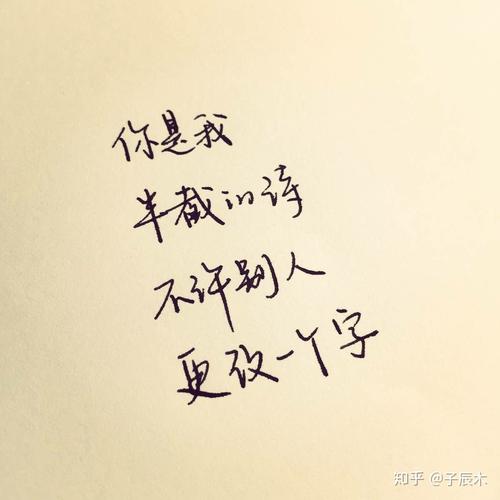 你是我
半截的诗
不许别人
更改一个字
知乎 @子辰木